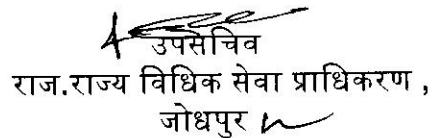 उपसचिव
राज.राज्य विधिक सेवा प्राधिकरण ,
जोधपुर